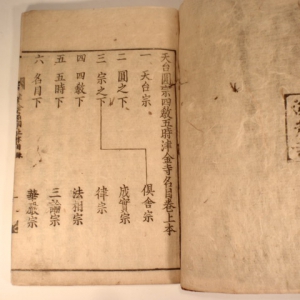 天台圓宗四教五時津金寺名目卷上本
一 天台宗 俱舍宗
二 圓之下 成實宗
三 宗之下 律宗
四 四教下 法相宗
五 五時下 三論宗
六 名目下 華嚴宗